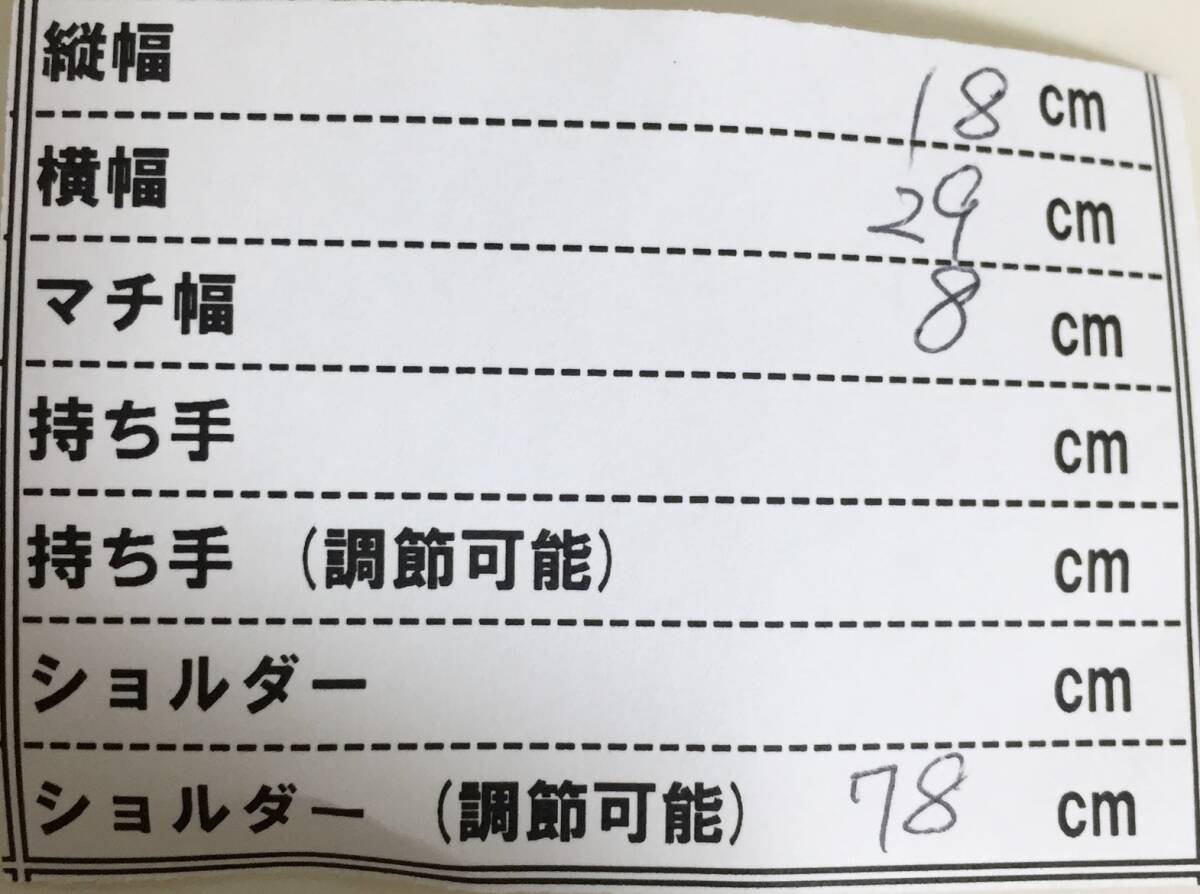 縦幅 18 cm
横幅 29 cm
マチ幅 8 cm
持ち手 cm
持ち手 (調節可能) cm
ショルダー cm
ショルダー (調節可能) 78 cm